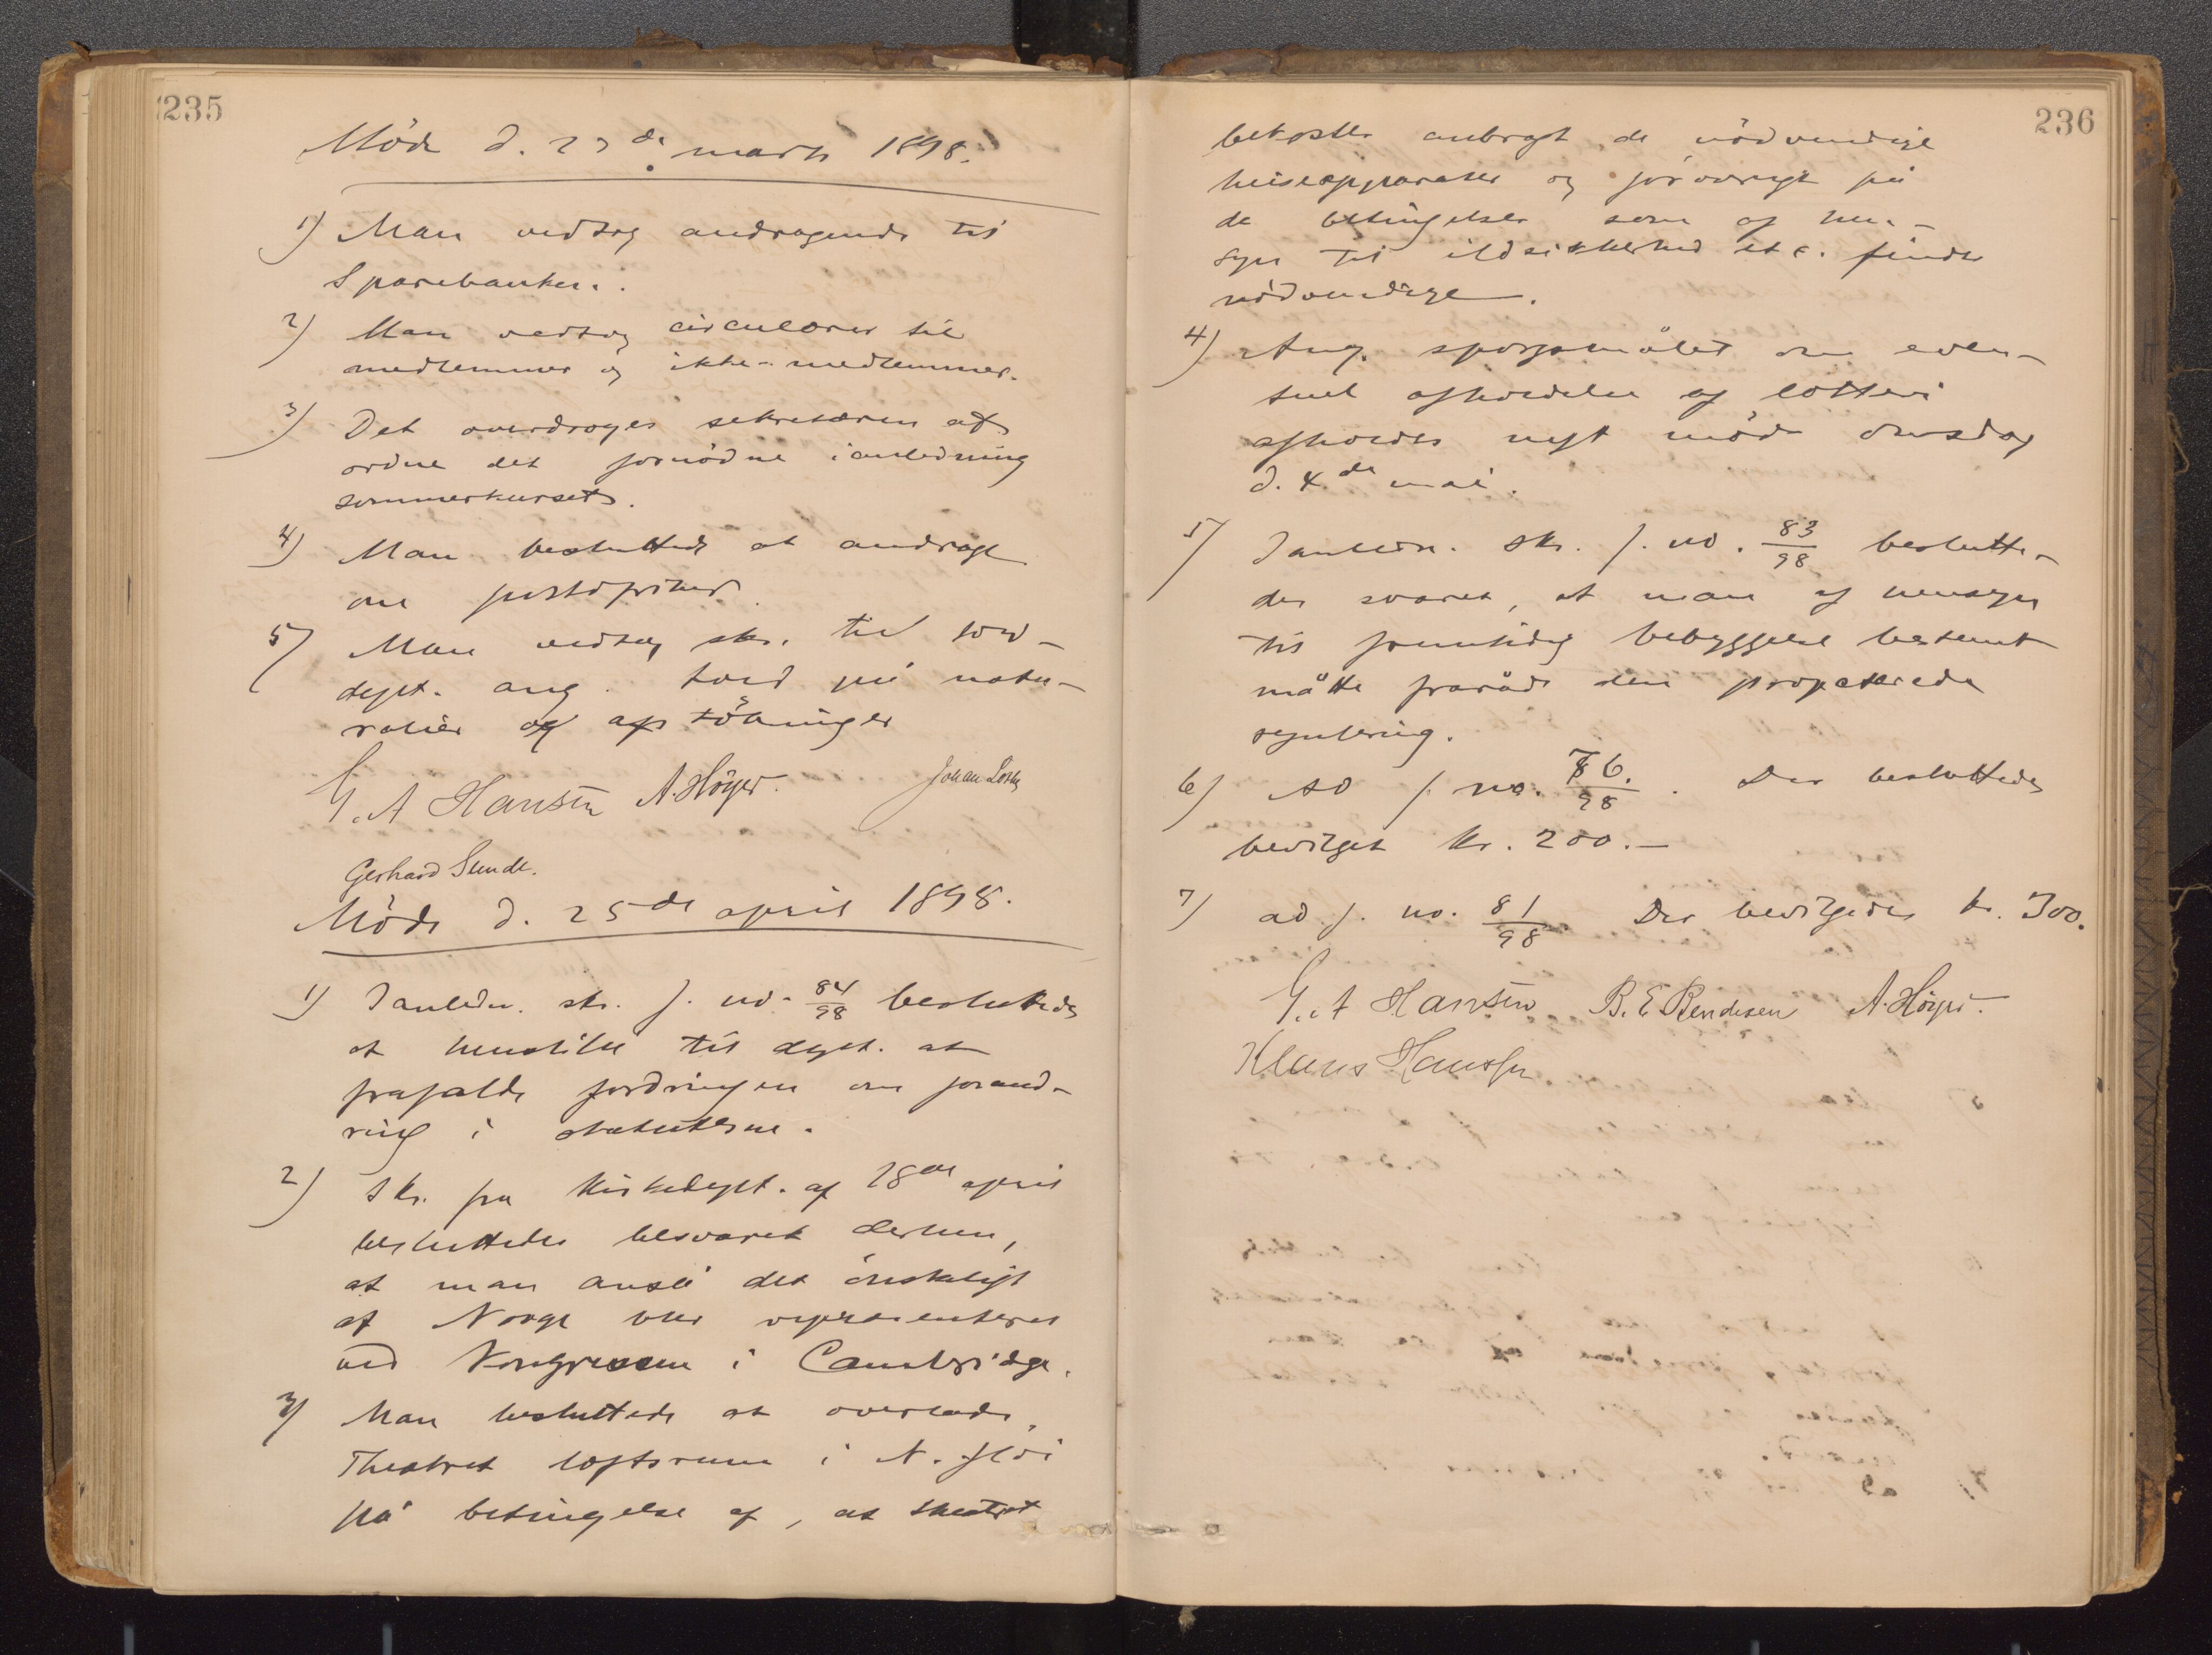 235
Möde d. 23de marts 1898.
1) Man vedtog andragende til
Sparebanken.
2) Man vedtog circulærer til
medlemmer og ikke-medlemmer.
3) Det overdroges sekretæren at
ordne det fornödne i anledning
sommerkurset.
4) Man besluttede at andrage
om portofrihed.
5) Man vedtog skr. til told-
dept. ang. told på natu-
ralier og afstöbninger
G. A Hansen A. Höyer. Johan Losh
Gerhard Sunde.
Möde d. 25de april 1898.
1) I anledn. skr. j. no. 84/98 besluttedes
at henstille til dept. at
frafalde fordringen om forand-
ring i statuterne.
2) Skr. fra Kirkedept. af 18de april
besluttedes besvaret derhen,
at man anså det önskeligt
at Norge blev repræsenteret
ved Kongressen i Cambridge.
3) Man besluttede at overlade
Theatret loftsrum i N. flöi
på betingelse af, at theatret
236
bekoster anbragt de nödvendige
heiseapparater og forövrigt på
de betingelser som af hen-
syn til ildsikkerhed etc. findes
nödvendige.
4) Ang. spörgsmålet om even-
tuel afholdelse af lotteri
afholdes nyt möde onsdag
d. 4de mai.
5) I anledn. skr. j. no. 83/98 beslutte-
des svaret, at man af hensyn
til fremtidig bebyggelse bestemt
måtte fraråde den projekterede
regulering.
6) ad j. no. 76/98. Der besluttedes
bevilget kr. 200.-
7) ad j. no. 81/98 Der bevilgedes kr. 300.
G. A Hansen B. E Bendixen A. Höyer.
Klaus Hanssen